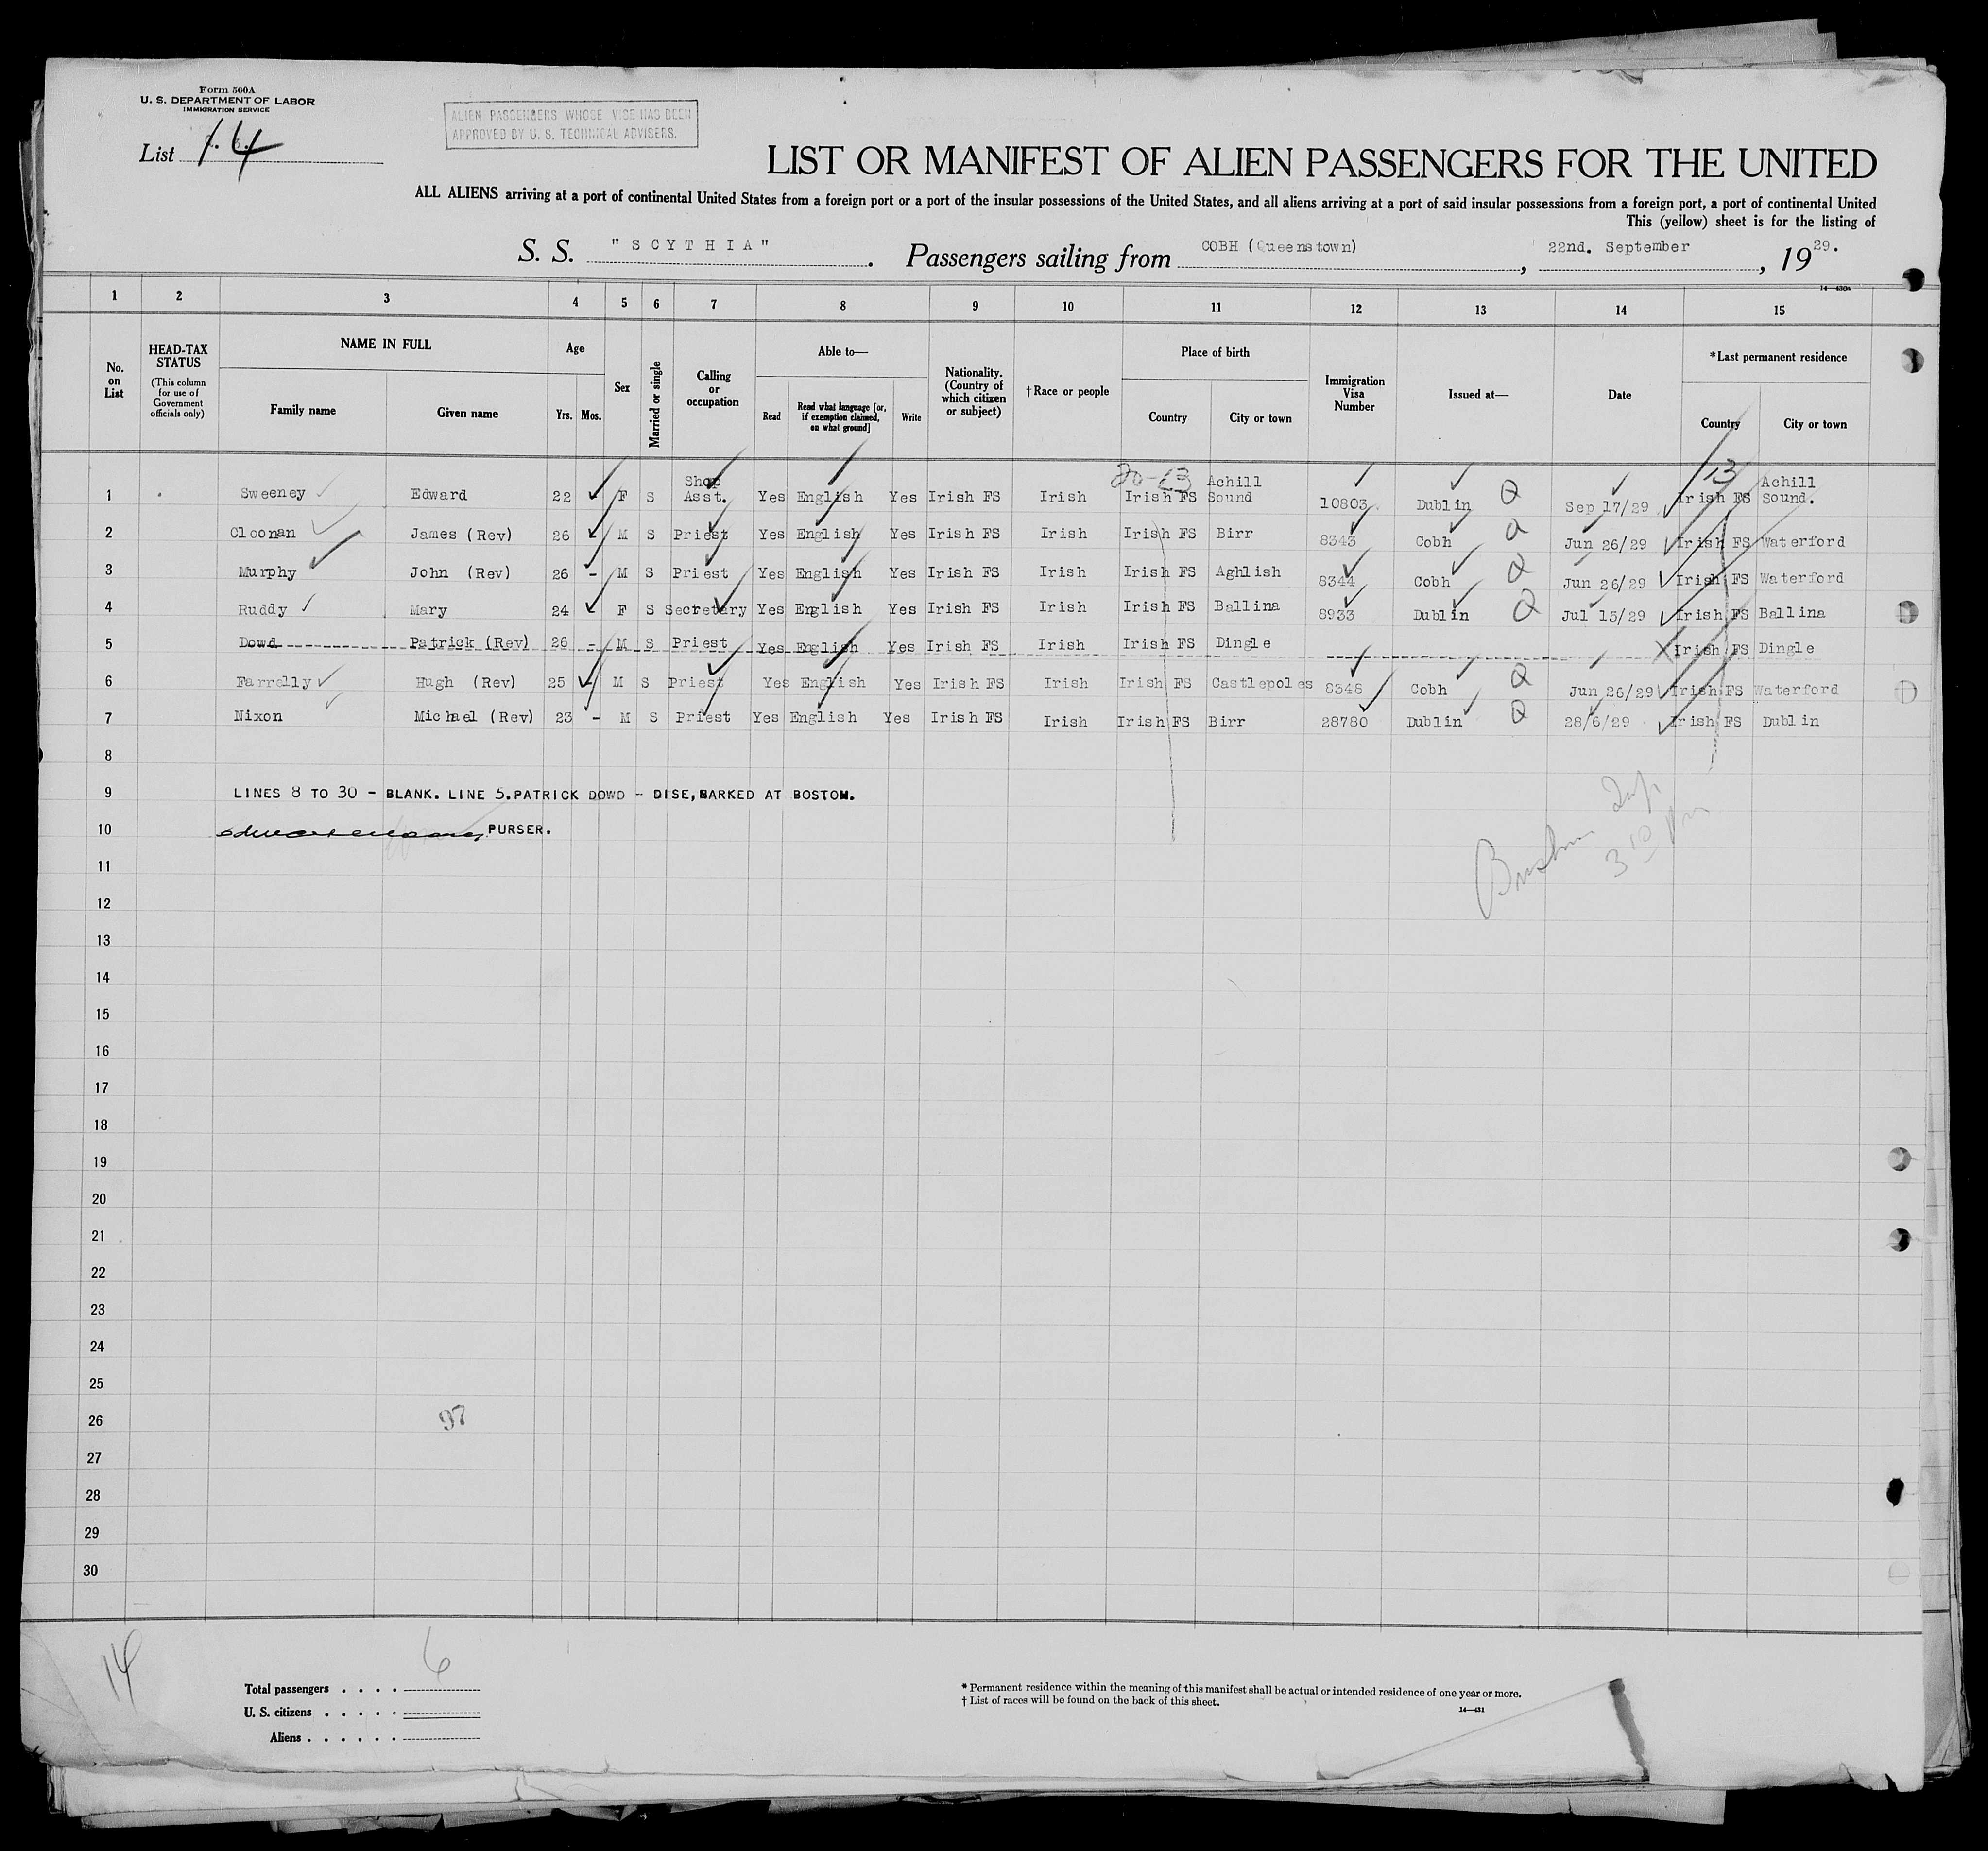 Form 500A
U. S. DEPARTMENT OF LABOR
IMMIGRATION SERVICE
List 14
ALIEN PASSENGERS WHOSE VISE HAS BEEN
APPROVED BY U. S. TECHNICAL ADVISERS.
LIST OR MANIFEST OF ALIEN PASSENGERS FOR THE UNITED
ALL ALIENS arriving at a port of continental United States from a foreign port or a port of the insular possessions of the United States, and all aliens arriving at a port of said insular possessions from a foreign port, a port of continental United
This (yellow) sheet is for the listing of
S. S. "SCYTHIA". Passengers sailing from COBH (Queenstown), 22nd. September, 1929.
14—430a
1 2 3 4 5 6 7 8 9 10 11 12 13 14 15
No. on List
HEAD-TAX STATUS
(This column for use of Government officials only)
NAME IN FULL
Family name
Given name
Age
Yrs. Mos.
Sex
Married or single
Calling or occupation
Able to—
Read
Read what language [or, if exemption claimed, on what ground]
Write
Nationality. (Country of which citizen or subject)
†Race or people
Place of birth
Country
City or town
Immigration Visa Number
Issued at—
Date
*Last permanent residence
Country
City or town
13
1 Sweeney Edward 22 F S Shop Asst. Yes English Yes Irish FS Irish Irish FS Achill Sound 10803 Dublin Q Sep 17/29 Irish FS Achill Sound.
2 Cloonan James (Rev) 26 M S Priest Yes English Yes Irish FS Irish Irish FS Birr 8343 Cobh Q Jun 26/29 Irish FS Waterford
3 Murphy John (Rev) 26 - M S Priest Yes English Yes Irish FS Irish Irish FS Aghlish 8344 Cobh Q Jun 26/29 Irish FS Waterford
4 Ruddy Mary 24 F S Secretary Yes English Yes Irish FS Irish Irish FS Ballina 8933 Dublin Q Jul 15/29 Irish FS Ballina
5 Dowd Patrick (Rev) 26 - M S Priest Yes English Yes Irish FS Irish Irish FS Dingle X Irish FS Dingle
6 Farrelly Hugh (Rev) 25 M S Priest Yes English Yes Irish FS Irish Irish FS Castlepoles 8348 Cobh Q Jun 26/29 Irish FS Waterford
7 Nixon Michael (Rev) 23 - M S Priest Yes English Yes Irish FS Irish Irish FS Birr 28780 Dublin Q 28/6/29 Irish FS Dublin
8
9 LINES 8 TO 30 - BLANK. LINE 5. PATRICK DOWD - DISE,BARKED AT BOSTON.
10 PURSER.
11
12
13
14
15
16
17
18
19
20
21
22
23
24
25
26 97
27
28
29
30
14
6
Total passengers . . . .
U. S. citizens . . . . .
Aliens . . . . . .
* Permanent residence within the meaning of this manifest shall be actual or intended residence of one year or more.
† List of races will be found on the back of this sheet.
14—431